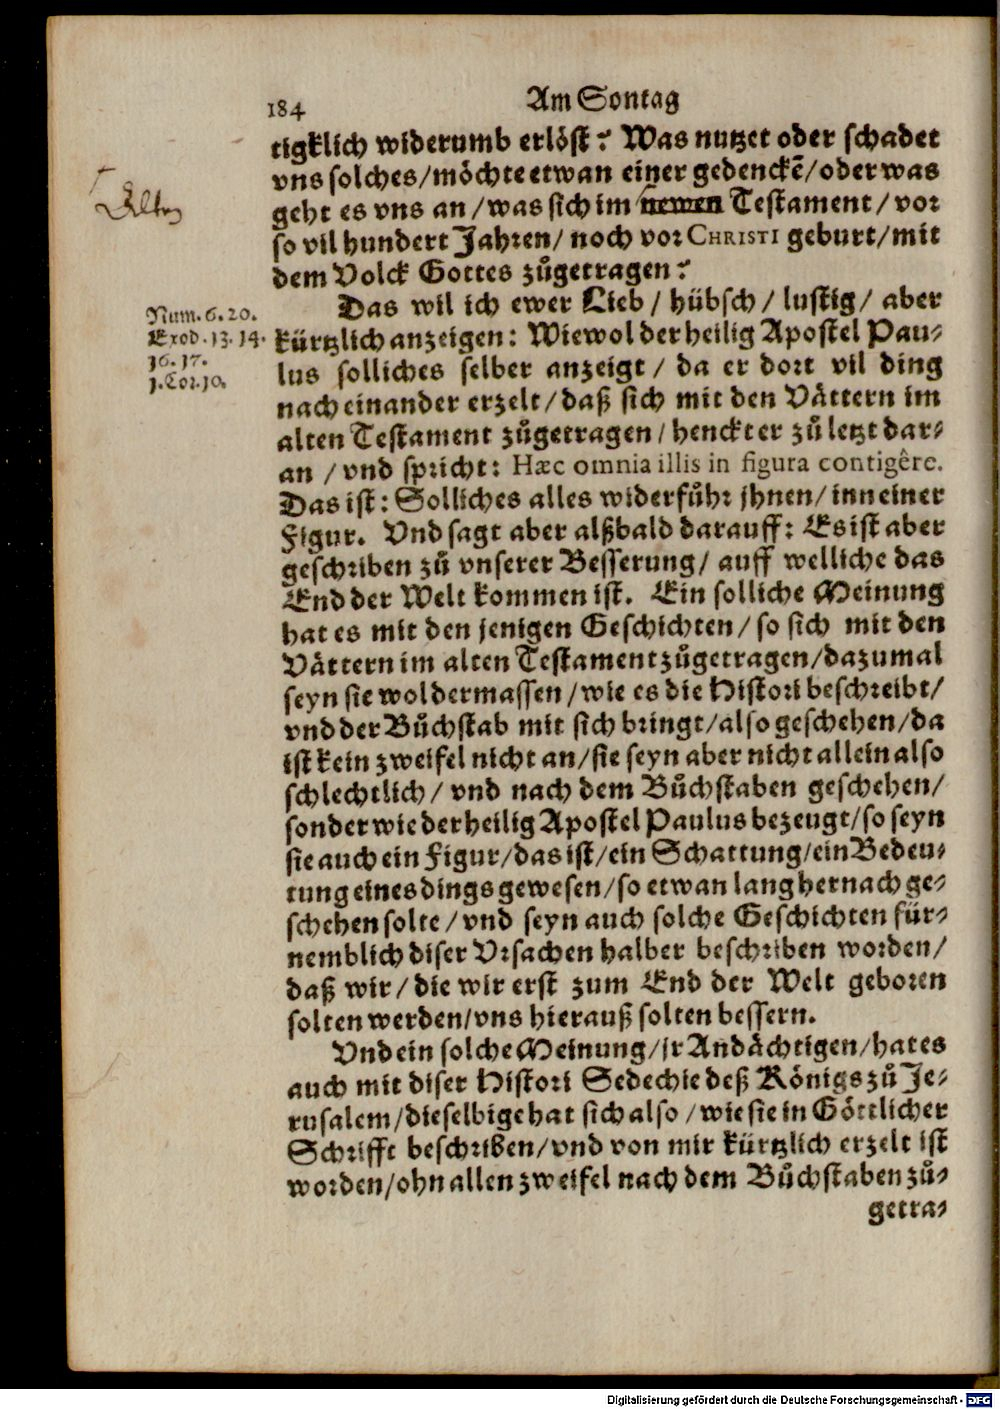 184 Am Sontag
tigklich widerumb erlöst? Was nutzet oder schadet
vns solches/möchte etwan einer gedenckẽ/oder was
geht es vns an/was sich im newen Testament/vor
so vil hundert Jahren/noch vor CHRISTI geburt/mit
dem Volck Gottes zůgetragen?
Das wil ich ewer Lieb/hübsch/lustig/aber
kürtzlich anzeigen: Wiewol der heilig Apostel Pau-
lus solliches selber anzeigt/da er dort vil ding
nach einander erzelt/daß sich mit den Vättern im
alten Testament zůgetragen/henckt er zů letzt dar-
an/vnd spricht: Hæc omnia illis in figura contigêre.
Das ist: Solliches alles widerfůhr jhnen/inn einer
Figur. Vnd sagt aber alßbald darauff: Es ist aber
geschriben zů vnserer Besserung/auff welliche das
End der Welt kommen ist. Ein solliche Meinung
hat es mit den jenigen Geschichten/so sich mit den
Vättern im alten Testament zůgetragen/dazumal
seyn sie wol dermassen/wie es die Histori beschreibt/
vnd der Bůchstab mit sich bringt/also geschehen/da
ist kein zweifel nicht an/sie seyn aber nicht allein also
schlechtlich/vnd nach dem Bůchstaben geschehen/
sonder wie der heilig Apostel Paulus bezeugt/so seyn
sie auch ein Figur/das ist/ein Schattung/ein Bedeu-
tung eines dings gewesen/so etwan lang hernach ge-
schehen solte/vnd seyn auch solche Geschichten für-
nemblich diser Vrsachen halber beschriben worden/
daß wir/die wir erst zum End der Welt geboren
solten werden/vns hierauß solten bessern.
Vnd ein solche Meinung/jr Andächtigen/hat es
auch mit diser Histori Sedechie deß Königs zů Je-
rusalem/dieselbige hat sich also/wie sie in Göttlicher
Schrifft beschriben/vnd von mir kürtzlich erzelt ist
worden/ohn allen zweifel nach dem Bůchstaben zů-
getra-
Alten
Num. 6. 20.
Exod. 13. 14.
16. 17.
1. Cor. 10.
Digitalisierung gefördert durch die Deutsche Forschungsgemeinschaft - DFG